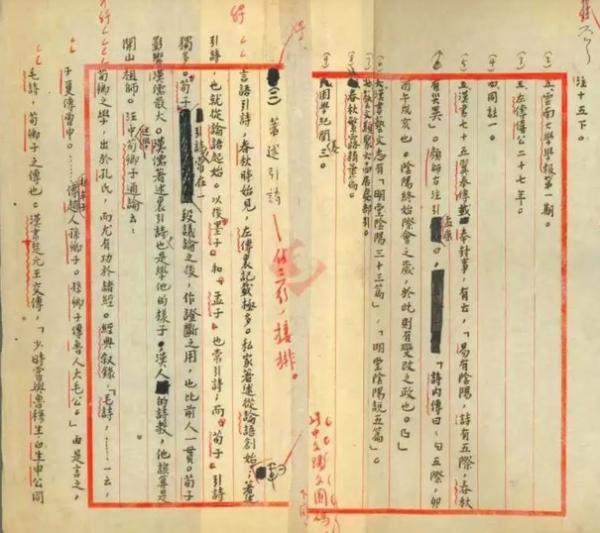 注十五下。
(三)雲南大學學報第一期。
(三)左傳襄公二十七年。
(五)漢書七十五翼奉傳載奉封事，有云，「易有陰陽，詩有五際，春秋
有災異」。顏師古注引「詩內傳曰，「五際，卯
酉午戌亥也。陰陽終始際會之歲，於此則有變改之政也。」
漢書藝文志有「明堂陰陽三十三篇」，「明堂陰陽說五篇」。
春秋繁露精華篇。
困學紀聞三。
(三)著述引詩
作三號，接排。
言語引詩，春秋時始見，左傳裏記載極多。私家著述從論語創始；著述
引詩，也就從論語起始。以後墨子和孟子也常引詩，而荀子引詩
獨多。荀子引詩常在一段議論之後，作證斷之用，也比前人一貫。荀子
影響漢儒最大。漢儒著述裏引詩也是學他的樣子。漢人的詩教，他該算是
開山祖師。汪中荀卿子通論云：
荀卿之學，出於孔氏，而尤有功於諸經。經典敘錄，「毛詩，……一云，
子夏傳曾申。……傳趙人孫卿子。孫卿子傳魯人大毛公。」由是言之，
毛詩，荀卿子之傳也。漢書楚元王交傳，「少時嘗與魯穆生白生申公同